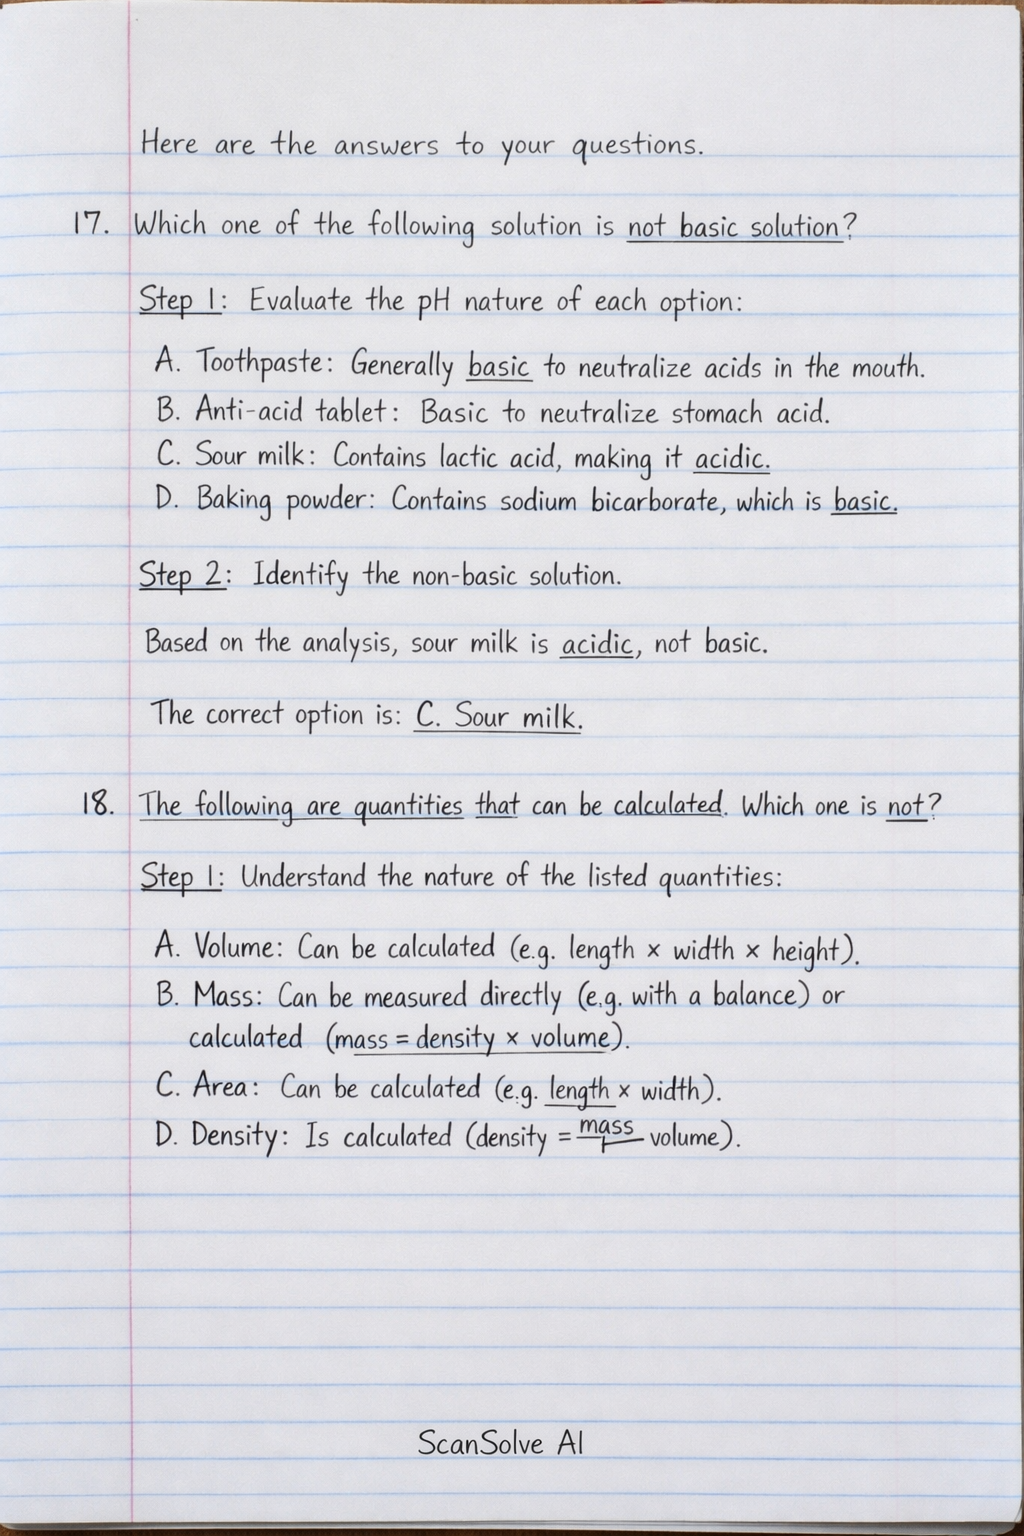 Here are the answers to your questions.
17. Which one of the following solution is not basic solution?
Step 1: Evaluate the pH nature of each option:
A. Toothpaste: Generally basic to neutralize acids in the mouth.
B. Anti-acid tablet: Basic to neutralize stomach acid.
C. Sour milk: Contains lactic acid, making it acidic.
D. Baking powder: Contains sodium bicarborate, which is basic.
Step 2: Identify the non-basic solution.
Based on the analysis, sour milk is acidic, not basic.
The correct option is: C. Sour milk.
18. The following are quantities that can be calculated. Which one is not?
Step 1: Understand the nature of the listed quantities:
A. Volume: Can be calculated (e.g. length × width × height).
B. Mass: Can be measured directly (e.g. with a balance) or
calculated (mass = density × volume).
C. Area: Can be calculated (e.g. length × width).
D. Density: Is calculated (density = mass volume).
ScanSolve AI